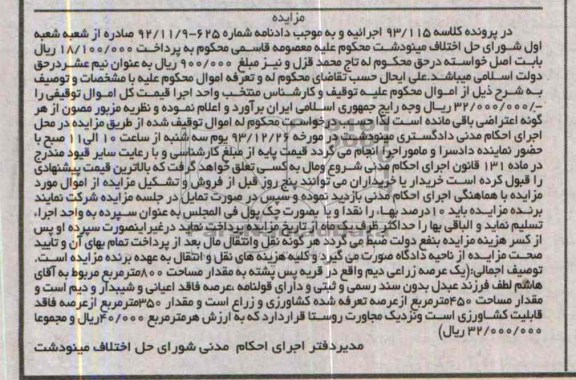 مزایده
در پرونده کلاسه ۹۳/۱۱۵ اجرائیه و به موجب دادنامه شماره ۶۲۵-۹۲/۱۱/۹ صادره از شعبه شعبه
اول شورای حل اختلاف مینودشت محکوم علیه معصومه قاسمی محکوم به پرداخت ۱۸/۱۰۰/۰۰۰ ریال
بابت اصل خواسته درحق محکوم له تاج محمد قزل و نیز مبلغ ۹۰۰/۰۰۰ ریال به عنوان نیم عشردرحق
دولت اسلامی میباشد.علی ایحال حسب تقاضای محکوم له و تعرفه اموال محکوم علیه با مشخصات و توصیف
به شرح ذیل از اموال محکوم علیه توقیف و کارشناس منتخب واحد اجرا قیمت کل اموال توقیفی را
-/۳۲/۰۰۰/۰۰۰ ریال وجه رایج جمهوری اسلامی ایران برآورد و اعلام نموده و نظریه مزبور مصون از هر
گونه اعتراضی باقی مانده است لذا حسب درخواست محکوم له اموال توقیف شده از طریق مزایده در محل
اجرای احکام مدنی دادگستری مینودشت در مورخه ۹۳/۱۲/۲۶ یوم سه شنبه از ساعت ۱۰ الی۱۱ صبح با
حضور نماینده دادسرا و ماموراجرا انجام می گردد قیمت پایه از مبلغ کارشناسی و با رعایت سایر قیود مندرج
در ماده ۱۳۱ قانون اجرای احکام مدنی شروع ومال به کسی تعلق خواهد گرفت که بالاترین قیمت پیشنهادی
را قبول کرده است خریدار یا خریداران می توانند پنج روز قبل از فروش و تشکیل مزایده از اموال مورد
مزایده با هماهنگی اجرای احکام مدنی بازدید نموده و سپس در صورت تمایل در جلسه مزایده شرکت نمایند
برنده مزایده باید ۱۰درصد بها، را نقدا و یا بصورت چک پول فی المجلس به عنوان سپرده به واحد اجراء
تسلیم نماید و الباقی بها را حداکثر ظرف یک ماه از تاریخ مزایده پرداخت نماید درغیراینصورت سپرده او پس
از کسر هزینه مزایده بنفع دولت ضبط می گردد هر گونه نقل وانتقال مال بعد از پرداخت تمام بهای آن و تایید
صحت مزایده از ناحیه دادگاه صورت می گیرد و کلیه هزینه های نقل و انتقال به عهده برنده مزایده است.
توصیف اجمالی:(یک عرصه زراعی دیم واقع در قریه پس پشته به مقدار مساحت ۸۰۰مترمربع مربوط به آقای
هاشم لطف فرزند عبدل بدون سند رسمی و ثبتی و دارای قولنامه ،عرصه فاقد اعیانی و شیبدار و دیم است و
مقدار مساحت ۴۵۰مترمربع ازعرصه تعرفه شده کشاورزی و زراعی است و مقدار ۳۵۰مترمربع ازعرصه فاقد
قابلیت کشاورزی است ونزدیک مجاورت روستا قراردارد که به ارزش هرمترمربع ۴۰/۰۰۰ریال و مجموعا
۳۲/۰۰۰/۰۰۰ ریال)
مدیردفتر اجرای احکام مدنی شورای حل اختلاف مینودشت